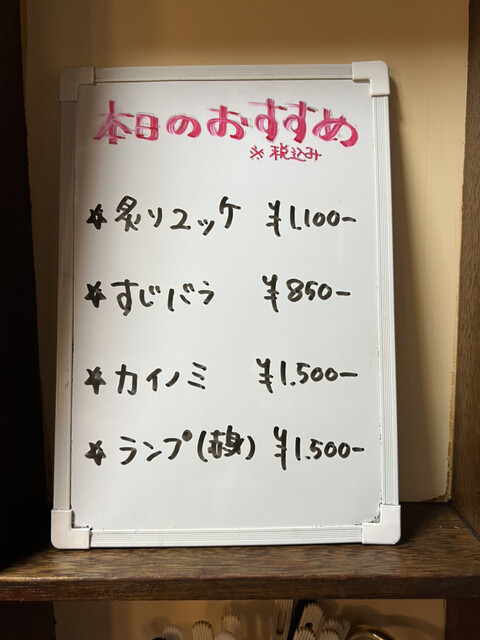 本日のおすすめ
※税込み
☆炙りユッケ ¥1.100-
☆すじバラ ¥850-
☆カイノミ ¥1.500-
☆ランプ(赤身) ¥1.500-